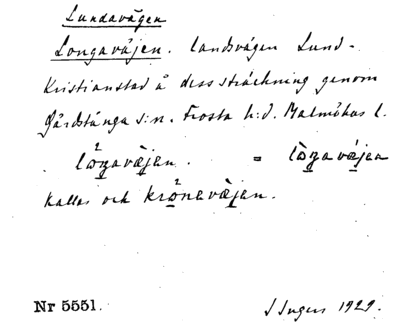 Lundavägen
Longavájen. landsvägen Lund-
Kristianstad å dess sträckning genom
Gårdstånga s:n. Frosta h:d. Malmöhus l.
lɷ̀ŋavæjen. = lɷ̀ŋavájen
kallas och krönevæjen.
Nr 5551.
S Ingers 1929.